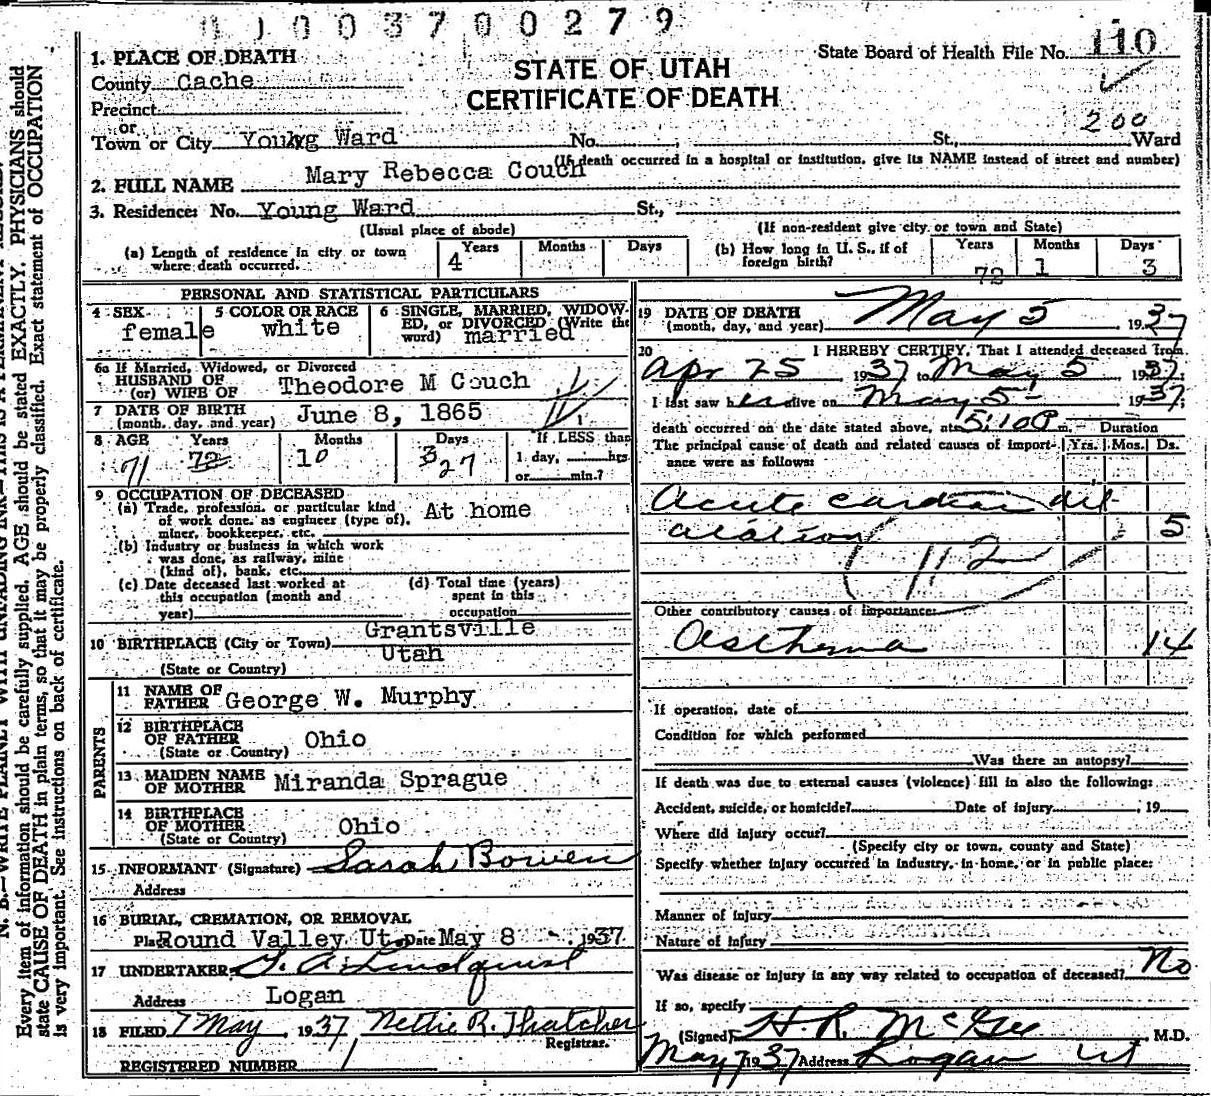 01003700279
State Board of Health File No. 110
1. PLACE OF DEATH
County Cache
STATE OF UTAH
CERTIFICATE OF DEATH
Precinct
or
Town or City Young Ward No. St., 200 Ward
(If death occurred in a hospital or institution, give its NAME instead of street and number)
2. FULL NAME Mary Rebecca Couch
3. Residence: No. Young Ward St.,
(Usual place of abode) (If non-resident give city or town and State)
(a) Length of residence in city or town where death occurred. Years 4 Months Days
(b) How long in U. S., if of foreign birth? Years 72 Months 1 Days 3
PERSONAL AND STATISTICAL PARTICULARS
4 SEX female
5 COLOR OR RACE white
6 SINGLE, MARRIED, WIDOWED, or DIVORCED (Write the word) married
6a If Married, Widowed, or Divorced
HUSBAND OF
(or) WIFE OF Theodore M Couch
7 DATE OF BIRTH
(month, day, and year) June 8, 1865
8 AGE Years 71 72 Months 10 Days 3 27 If LESS than
1 day, hrs.
or min.?
9 OCCUPATION OF DECEASED
(a) Trade, profession, or particular kind
of work done, as engineer (type of), At home
miner, bookkeeper, etc.
(b) Industry or business in which work
was done, as railway, mine
(kind of), bank, etc.
(c) Date deceased last worked at
this occupation (month and
year)
(d) Total time (years)
spent in this
occupation
10 BIRTHPLACE (City or Town) Grantsville
(State or Country) Utah
PARENTS
11 NAME OF
FATHER George W. Murphy
12 BIRTHPLACE
OF FATHER Ohio
(State or Country)
13 MAIDEN NAME
OF MOTHER Miranda Sprague
14 BIRTHPLACE
OF MOTHER Ohio
(State or Country)
15 INFORMANT (Signature) Sarah Bowen
Address
16 BURIAL, CREMATION, OR REMOVAL
Place Round Valley Ut. Date May 8 1937
17 UNDERTAKER
Address Logan
18 FILED 7 May, 1937 Nettie R. Thatcher
Registrar.
REGISTERED NUMBER 1
19 DATE OF DEATH
(month, day, and year) May 5 1937
20 I HEREBY CERTIFY, That I attended deceased from
Apr 25 1937 to May 5 1937.
I last saw her alive on May 5- 1937;
death occurred on the date stated above, at 5:10 P m. Duration
The principal cause of death and related causes of importance were as follows: Yrs. Mos. Ds.
Acute cardiac dil
atation 5
112
Other contributory causes of importance:
Asthma 14
If operation, date of
Condition for which performed
Was there an autopsy?
If death was due to external causes (violence) fill in also the following:
Accident, suicide, or homicide? Date of injury , 19
Where did injury occur?
(Specify city or town, county and State)
Specify whether injury occurred in industry, in home, or in public place:
Manner of injury
Nature of injury
Was disease or injury in any way related to occupation of deceased? No
If so, specify
(Signed) H. R. McGee M.D.
May 7 1937 Address Logan Ut
Every item of information should be carefully supplied. AGE should be stated EXACTLY. PHYSICIANS should
state CAUSE OF DEATH in plain terms, so that it may be properly classified. Exact statement of OCCUPATION
is very important. See instructions on back of certificate.